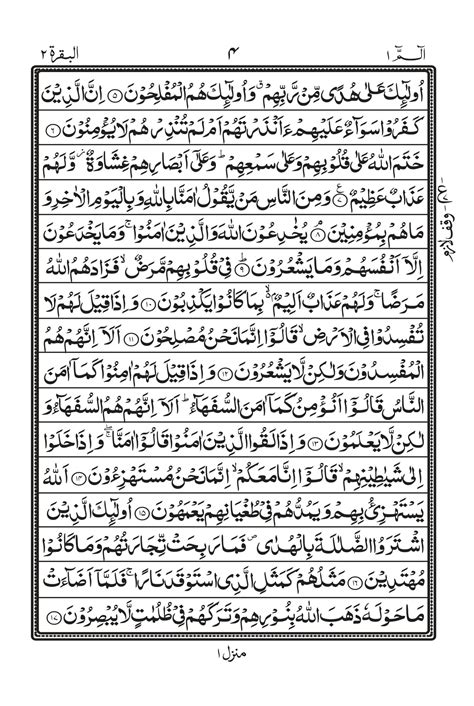 الٓمّٓ ١
٤
البقرة ٢
اُولٰٓئِكَ عَلٰى هُدًى مِّنْ رَّبِّهِمْ ۙ وَاُولٰٓئِكَ هُمُ الْمُفْلِحُوْنَ ۝٥ اِنَّ الَّذِيْنَ
كَفَرُوْا سَوَآءٌ عَلَيْهِمْ ءَاَنْذَرْتَهُمْ اَمْ لَمْ تُنْذِرْهُمْ لَا يُؤْمِنُوْنَ ۝٦
خَتَمَ اللّٰهُ عَلٰى قُلُوْبِهِمْ وَعَلٰى سَمْعِهِمْ ؕ وَعَلٰٓى اَبْصَارِهِمْ غِشَاوَةٌ ؗ وَّلَهُمْ
عَذَابٌ عَظِيْمٌ ۝٧ وَمِنَ النَّاسِ مَنْ يَّقُوْلُ اٰمَنَّا بِاللّٰهِ وَبِالْيَوْمِ الْاٰخِرِ وَ
مَا هُمْ بِمُؤْمِنِيْنَ ۝٨ يُخٰدِعُوْنَ اللّٰهَ وَالَّذِيْنَ اٰمَنُوْا ۚ وَمَا يَخْدَعُوْنَ
اِلَّاۤ اَنْفُسَهُمْ وَمَا يَشْعُرُوْنَ ۝٩ فِيْ قُلُوْبِهِمْ مَّرَضٌ ۙ فَزَادَهُمُ اللّٰهُ
مَرَضًا ۚ وَلَهُمْ عَذَابٌ اَلِيْمٌۢ ۙ بِمَا كَانُوْا يَكْذِبُوْنَ ۝١٠ وَاِذَا قِيْلَ لَهُمْ لَا
تُفْسِدُوْا فِي الْاَرْضِ ۙ قَالُوْۤا اِنَّمَا نَحْنُ مُصْلِحُوْنَ ۝١١ اَلَاۤ اِنَّهُمْ هُمُ
الْمُفْسِدُوْنَ وَلٰكِنْ لَّا يَشْعُرُوْنَ ۝١٢ وَاِذَا قِيْلَ لَهُمْ اٰمِنُوْا كَمَاۤ اٰمَنَ
النَّاسُ قَالُوْۤا اَنُؤْمِنُ كَمَاۤ اٰمَنَ السُّفَهَآءُ ؕ اَلَاۤ اِنَّهُمْ هُمُ السُّفَهَآءُ وَ
لٰكِنْ لَّا يَعْلَمُوْنَ ۝١٣ وَاِذَا لَقُوا الَّذِيْنَ اٰمَنُوْا قَالُوْۤا اٰمَنَّا ۖۚ وَاِذَا خَلَوْا
اِلٰى شَيٰطِيْنِهِمْ ۙ قَالُوْۤا اِنَّا مَعَكُمْ ۙ اِنَّمَا نَحْنُ مُسْتَهْزِءُوْنَ ۝١٤ اَللّٰهُ
يَسْتَهْزِئُ بِهِمْ وَيَمُدُّهُمْ فِيْ طُغْيَانِهِمْ يَعْمَهُوْنَ ۝١٥ اُولٰٓئِكَ الَّذِيْنَ
اشْتَرَوُا الضَّلٰلَةَ بِالْهُدٰى ۪ فَمَا رَبِحَتْ تِّجَارَتُهُمْ وَمَا كَانُوْا
مُهْتَدِيْنَ ۝١٦ مَثَلُهُمْ كَمَثَلِ الَّذِي اسْتَوْقَدَ نَارًا ۚ فَلَمَّاۤ اَضَآءَتْ
مَا حَوْلَهٗ ذَهَبَ اللّٰهُ بِنُوْرِهِمْ وَتَرَكَهُمْ فِيْ ظُلُمٰتٍ لَّا يُبْصِرُوْنَ ۝١٧
وقف لازم
منزل ١